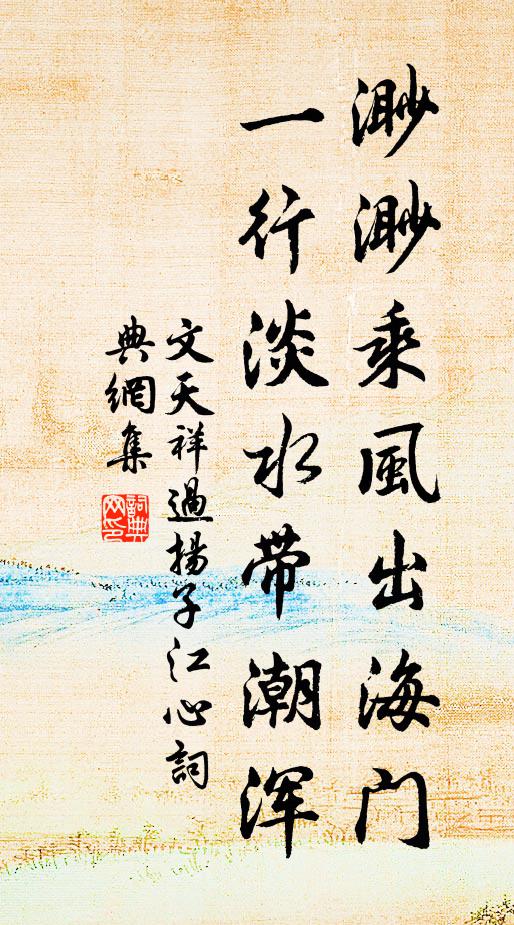 渺渺乘风出海门
一行淡水带潮浑
文天祥過揚子江心詞
典網集
詞典
网印